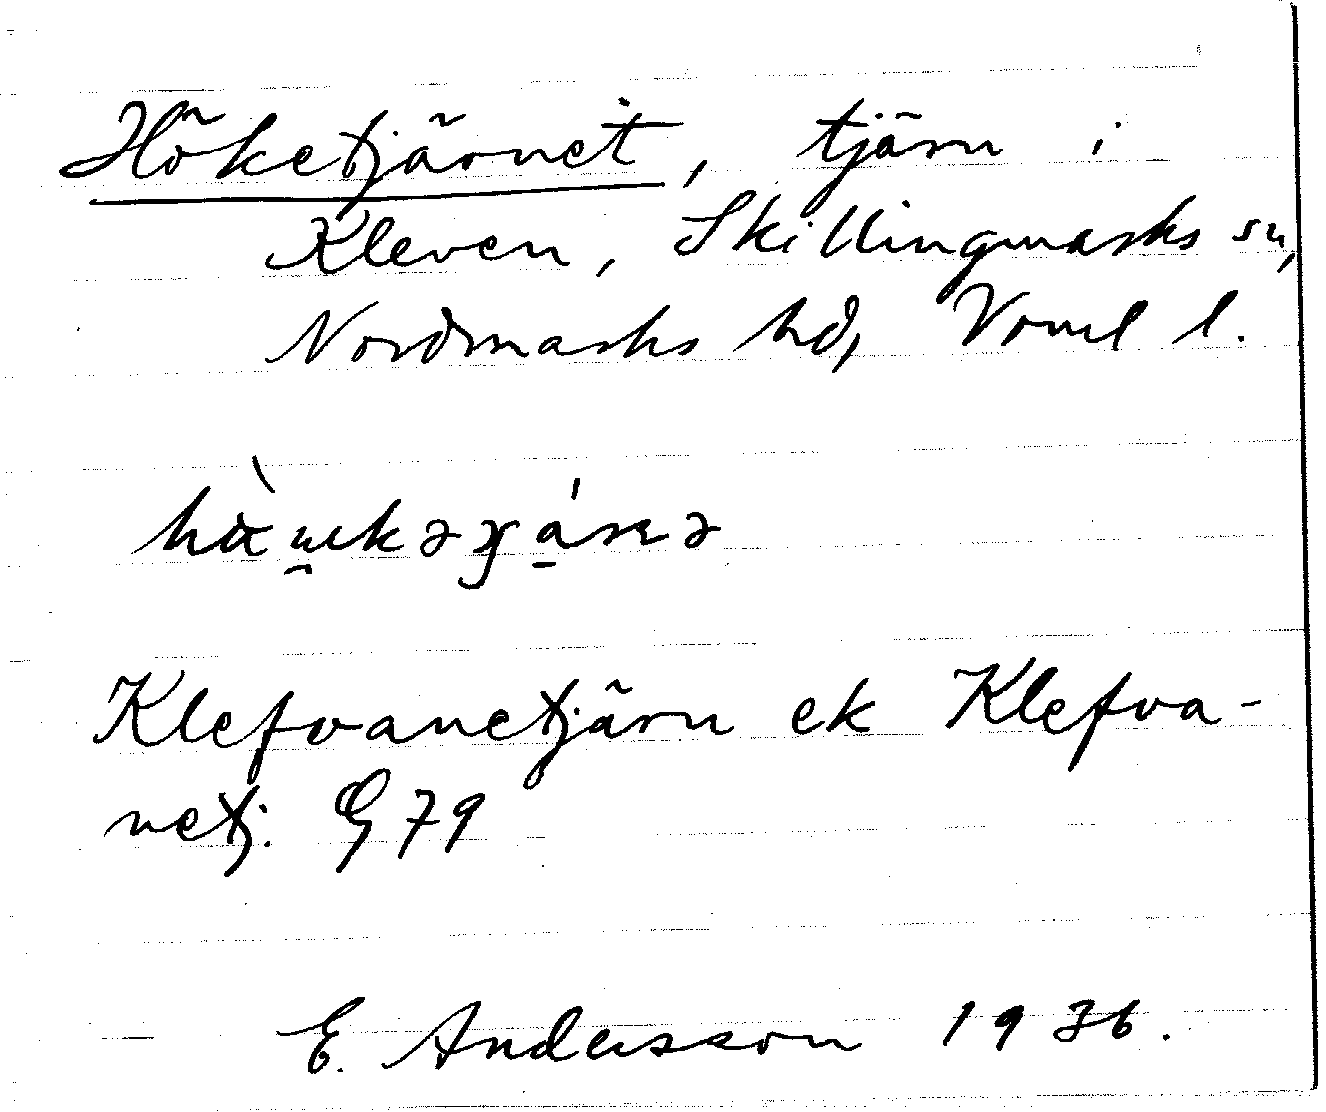 Höketjärnet, tjärn i
Kleven, Skillingmarks sn,
Nordmarks hd, Verml l.
Klefvanetjärn ek Klefva-
netj. G 79
E. Andersson 1936.